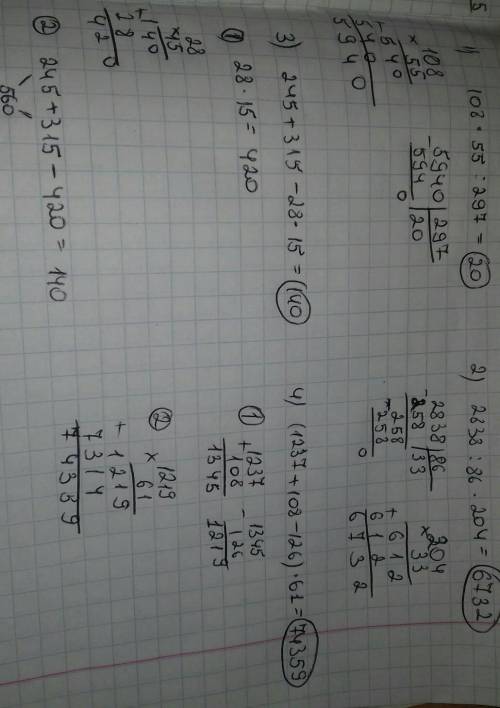 5
1) 108 · 55 : 297 = 20
× 108
55
540
+ 540
5940
- 5940 | 297
594 | 20
0
2) 2838 : 86 · 204 = 6732
- 2838 | 86
258 | 33
- 258
258
0
× 204
33
612
+ 612
6732
3) 245 + 315 - 28 · 15 = 140
① 28 · 15 = 420
28
× 15
140
+ 28
420
② 245 + 315 - 420 = 140
560
4) (1237 + 108 - 126) · 61 = 74359
① + 1237
108
1345
- 1345
126
1219
② × 1219
61
+ 1219
7314
74359